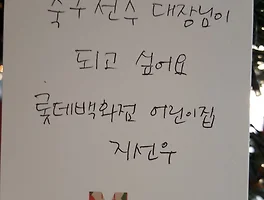 축구선수 대장님이
되고 싶어요
롯데백화점 어린이집
지선우